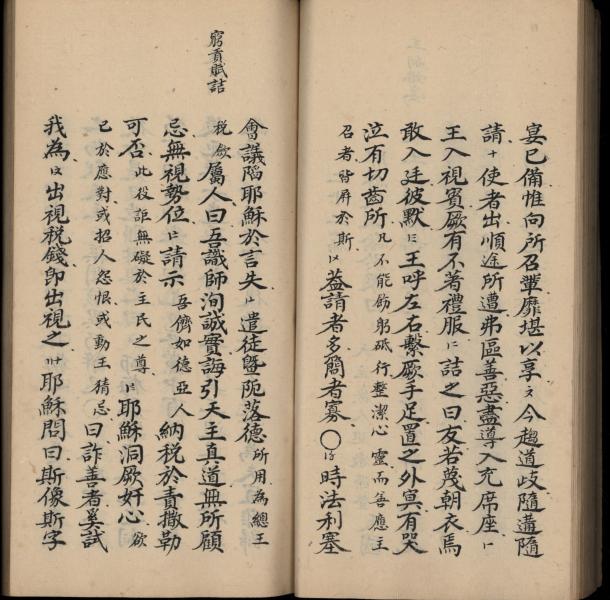 宴已備惟向所召輩靡堪以享今趨道歧隨遘隨
請十使者出順途所遭弗區善惡盡導入充席座
王入視賓厥有不著禮服詰之曰友若蔑朝衣焉
敢入廷彼默王呼左右繫厥手足置之外冥有哭
泣有切齒所凡不能飭躬砥行整潔心靈而善應主
召者皆屏於斯益請者多簡者寡〇時法利塞
窮貢賦詰
會議陷耶穌於言失遣徒曁阨落德所用為總王
稅斂屬人曰吾識師洵誠實誨引天主真道無所顧
忌無視勢位請示吾儕如德亞人納稅於責撒勒
可否此役詎無礙於主民之尊耶穌洞厥奸心欲
已於應對或招人怨恨或動王猜忌曰詐善者奚試
我為出視稅錢卽出視之耶穌問曰斯像斯字